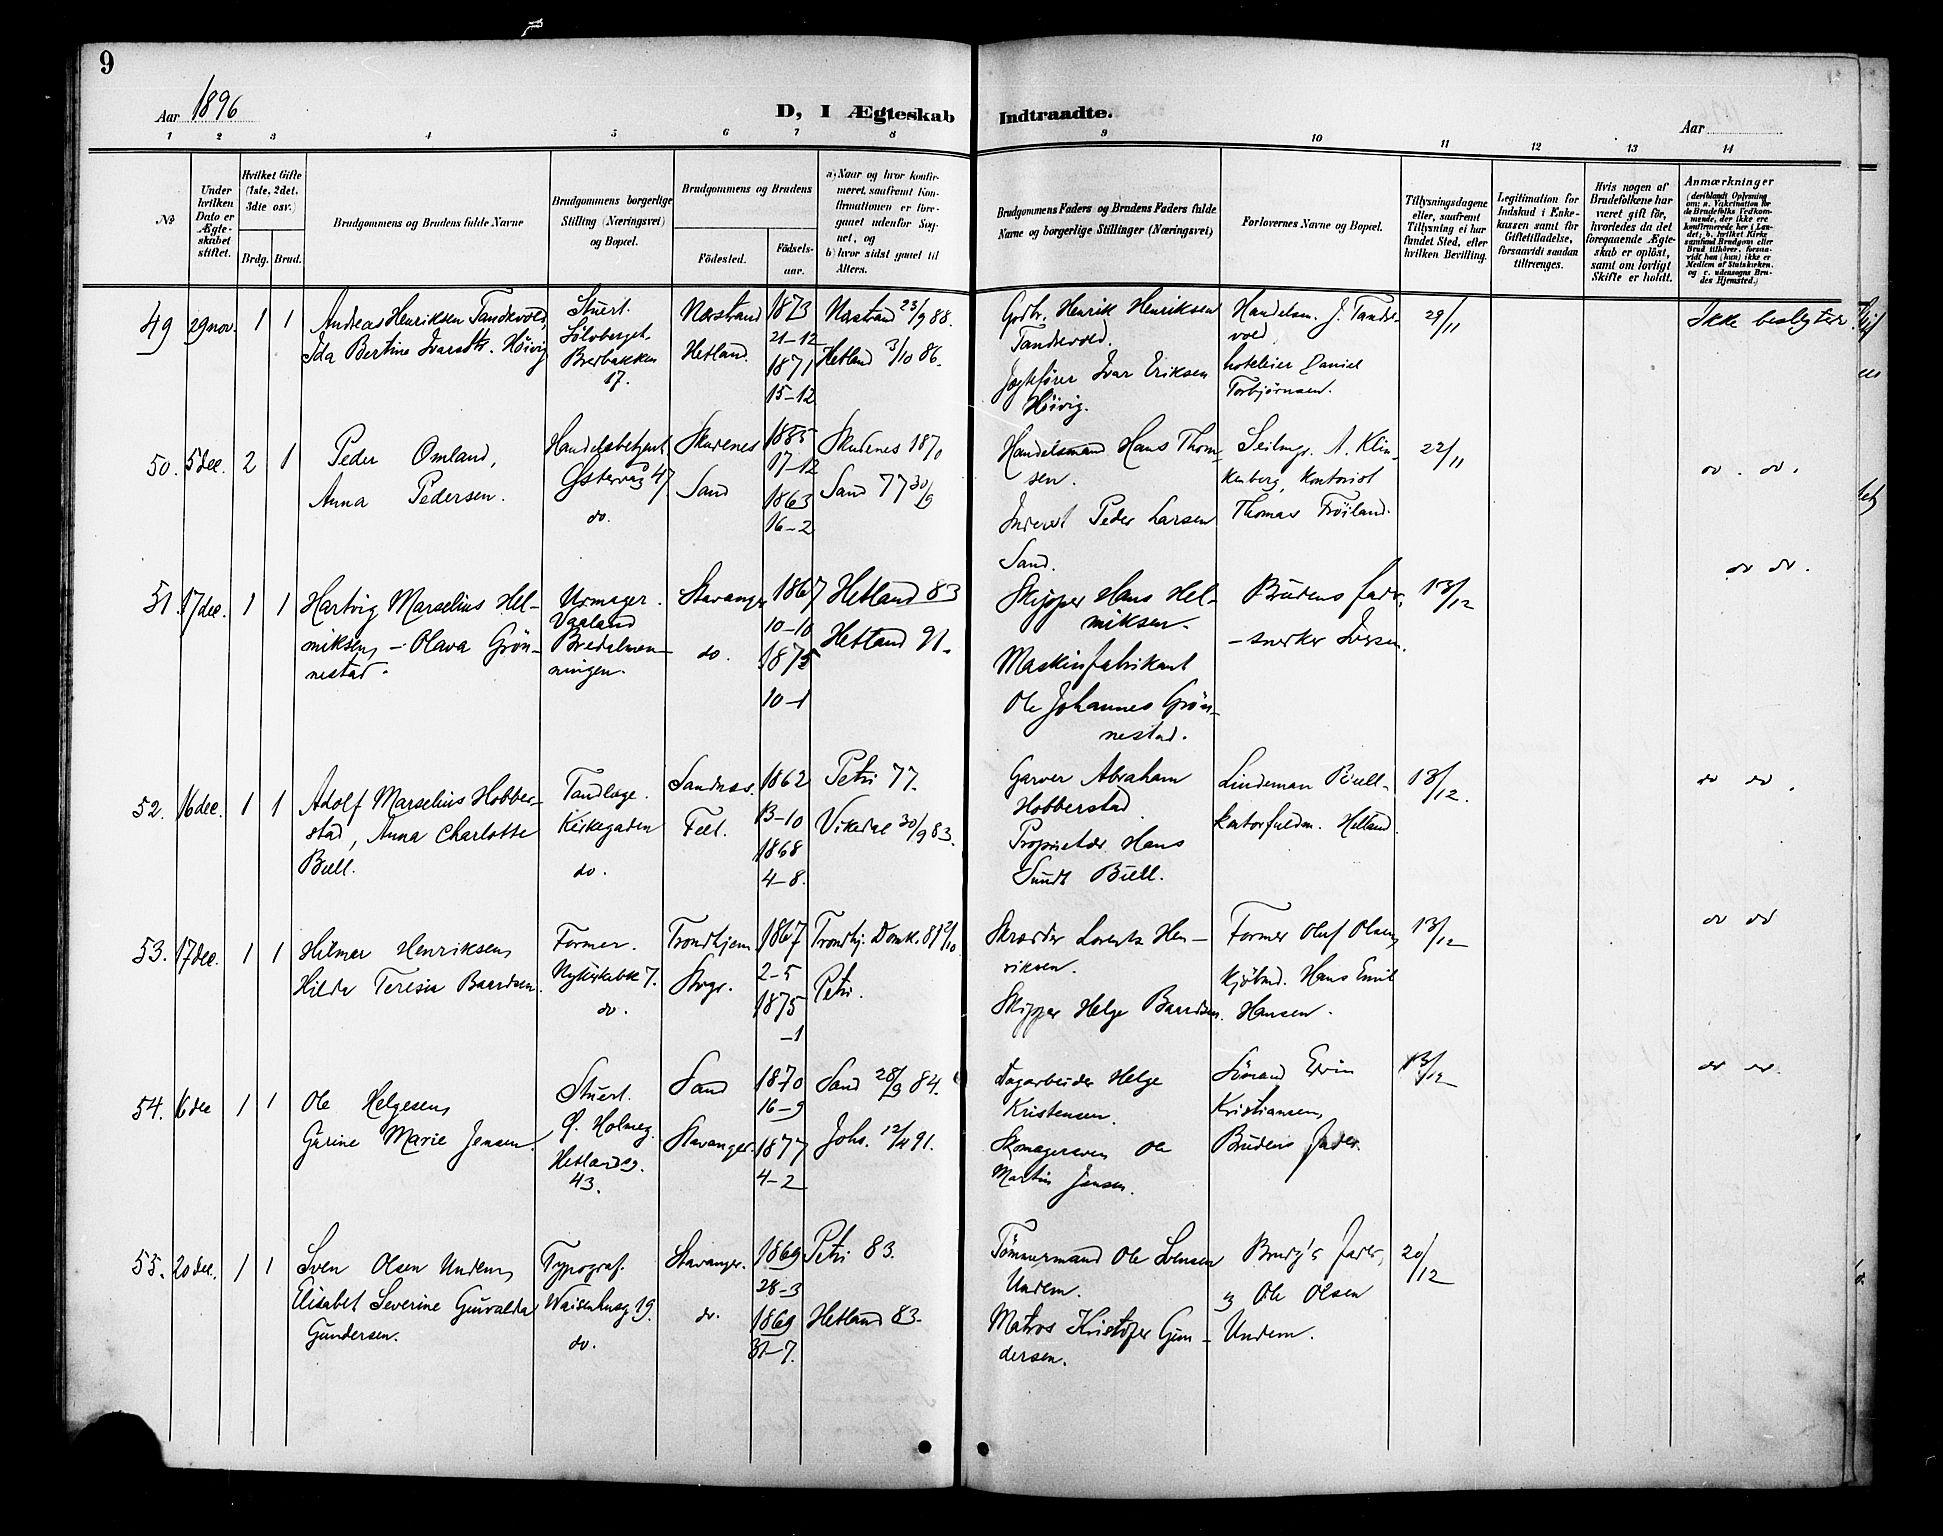 9
Aar 1896
D, I Ægteskab Indtraadte.
Aar
1 2 3 4 5 6 7 8 9 10 11 12 13 14
No
Under hvilken Dato er Ægteskabet stiftet.
Hvilket Gifte (1ste, 2det, 3die osv.)
Brdg. Brud.
Brudgommens og Brudens fulde Navne
Brudgommens borgerlige Stilling (Næringsvei) og Bopæl.
Brudgommens og Brudens
Fødested.
Fødselsaar.
a) Naar og hvor konfirmeret, saafremt Konfirmationen er foregaaet udenfor Sognet, og
b) hvor sidst gaaet til Alters.
Brudgommens Faders og Brudens Faders fulde Navne og borgerlige Stillinger (Næringsvei)
Forlovernes Navne og Bopæl.
Tillysningsdagene eller, saafremt Tillysning ei har fundet Sted, efter hvilken Bevilling.
Legitimation for Indskud i Enkekassen samt for Giftetilladelse, forsaavidt saadan tiltrænges.
Hvis nogen af Brudefolkene har været gift før, hvorledes da det foregaaende Ægteskab er opløst, samt om lovligt Skifte er holdt.
Anmærkninger
(deriblandt Oplysning om: a. Vakcination for de Brudefolks Vedkommende, der ikke ere konfirmerede her i Landet; b. hvilket Kirkesamfund Brudgom eller Brud tilhører, forsaavidt han (hun) ikke er Medlem af Statskirken, og c. udensogns Brudes Hjemsted.)
49 29 nov. 1 1
Andreas Henriksen Tandevold,
Ida Bertine Ivarsdtr. Høivig
Stuert.
Sølvberget.
Bredbakken
17.
Nærstrand
Hetland.
1873
21-12
1871
15-12
Nærstrand 23/9 88.
Hetland 3/10 86.
Gadbr. Henrik Henriksen
Tandevold.
Jægtfører Ivar Eriksen
Høivig.
Handelsm. J. Tande-
vold,
hoteleier Daniel
Torbjørnsen.
29/11
Ikke beslægtede.
50. 5 dec. 2 1
Peder Omland,
Anna Pedersen.
Handelsbetjent
Østervåg 47
do.
Skudenes
Sand
1855
17-12
1863
16-2
Skudenes 1870
Sand 77 30/9
Handelsmand Hans Thom-
sen.
Inderst Peder Larsen
Sand.
Seilmgr. A. Klin-
kenberg, Kontorist
Thomas Frøiland.
22/11
do. do.
51. 17 dec. 1 1
Hartvig Marselius Hel-
miksen, - Olava Grøn-
nestad.
Urmager.
Vaaland
Bredalmen-
ningen.
Stavanger
do.
1867
10-10
1875
10-1
Hetland 83
Hetland 91.
Skipper Hans Hel-
miksen.
Maskinfabrikant
Ole Johannes Grøn-
nestad.
Brudens fader,
- snerker Iversen.
13/12
do do.
52. 16 dec. 1 1
Adolf Marselius Hobber-
stad, Anna Charlotte
Bull.
Tandlæge.
Kirkegaden
do.
Sandnæs.
1862
13-10
1868
4-8.
Petri 77.
Vikedal 30/9 83.
Garver Abraham
Hobberstad
Proprietær Hans
Sundt Bull.
Lindeman Bull.
kontorfuldm. Helland.
13/12.
do do.
53. 17 dec. 1 1
Hilmar Henriksen,
Hilda Teresia Baardsen.
Former.
Nykirkebk 7.
do.
Trondhjem
Stvgr.
1867
2-5
1875
-1
Trondhj. Domk. 81 2/10
Petri.
Skrædder Lorentz Hen-
riksen.
Skipper Helge Baardsen.
Former Oluf Olsen,
kjøbmd. Hans Emil
Hansen.
13/12
do do
54. 16 dec 1 1
Ole Helgesen,
Gurine Marie Jensen.
Stuert.
Ø. Holmeg.
Hetlandsg.
43.
Sand
Stavanger.
1870
16-9
1877
4-2
Sand 28/9 84.
Johs. 12/4 91.
Dagarbeider Helge
Kristensen.
Skomagersven Ole
Martin Jensen.
Sømand Ervin
Kristiansen,
Brudens fader.
13/12
do do.
55. 20 dec. 1 1
Sven Olsen Undem,
Elisabet Severine Gunvalda
Gundersen.
Typograf.
Waisenhusg 19.
do.
Stavanger.
do.
1869
28-3
1869
31-7.
Petri 83.
Hetland 83.
Tømmermand Ole Svensen
Undem.
Matros Kristofer Gun-
dersen.
Brudg's fader,
og Ole Olsen
Undem.
20/12